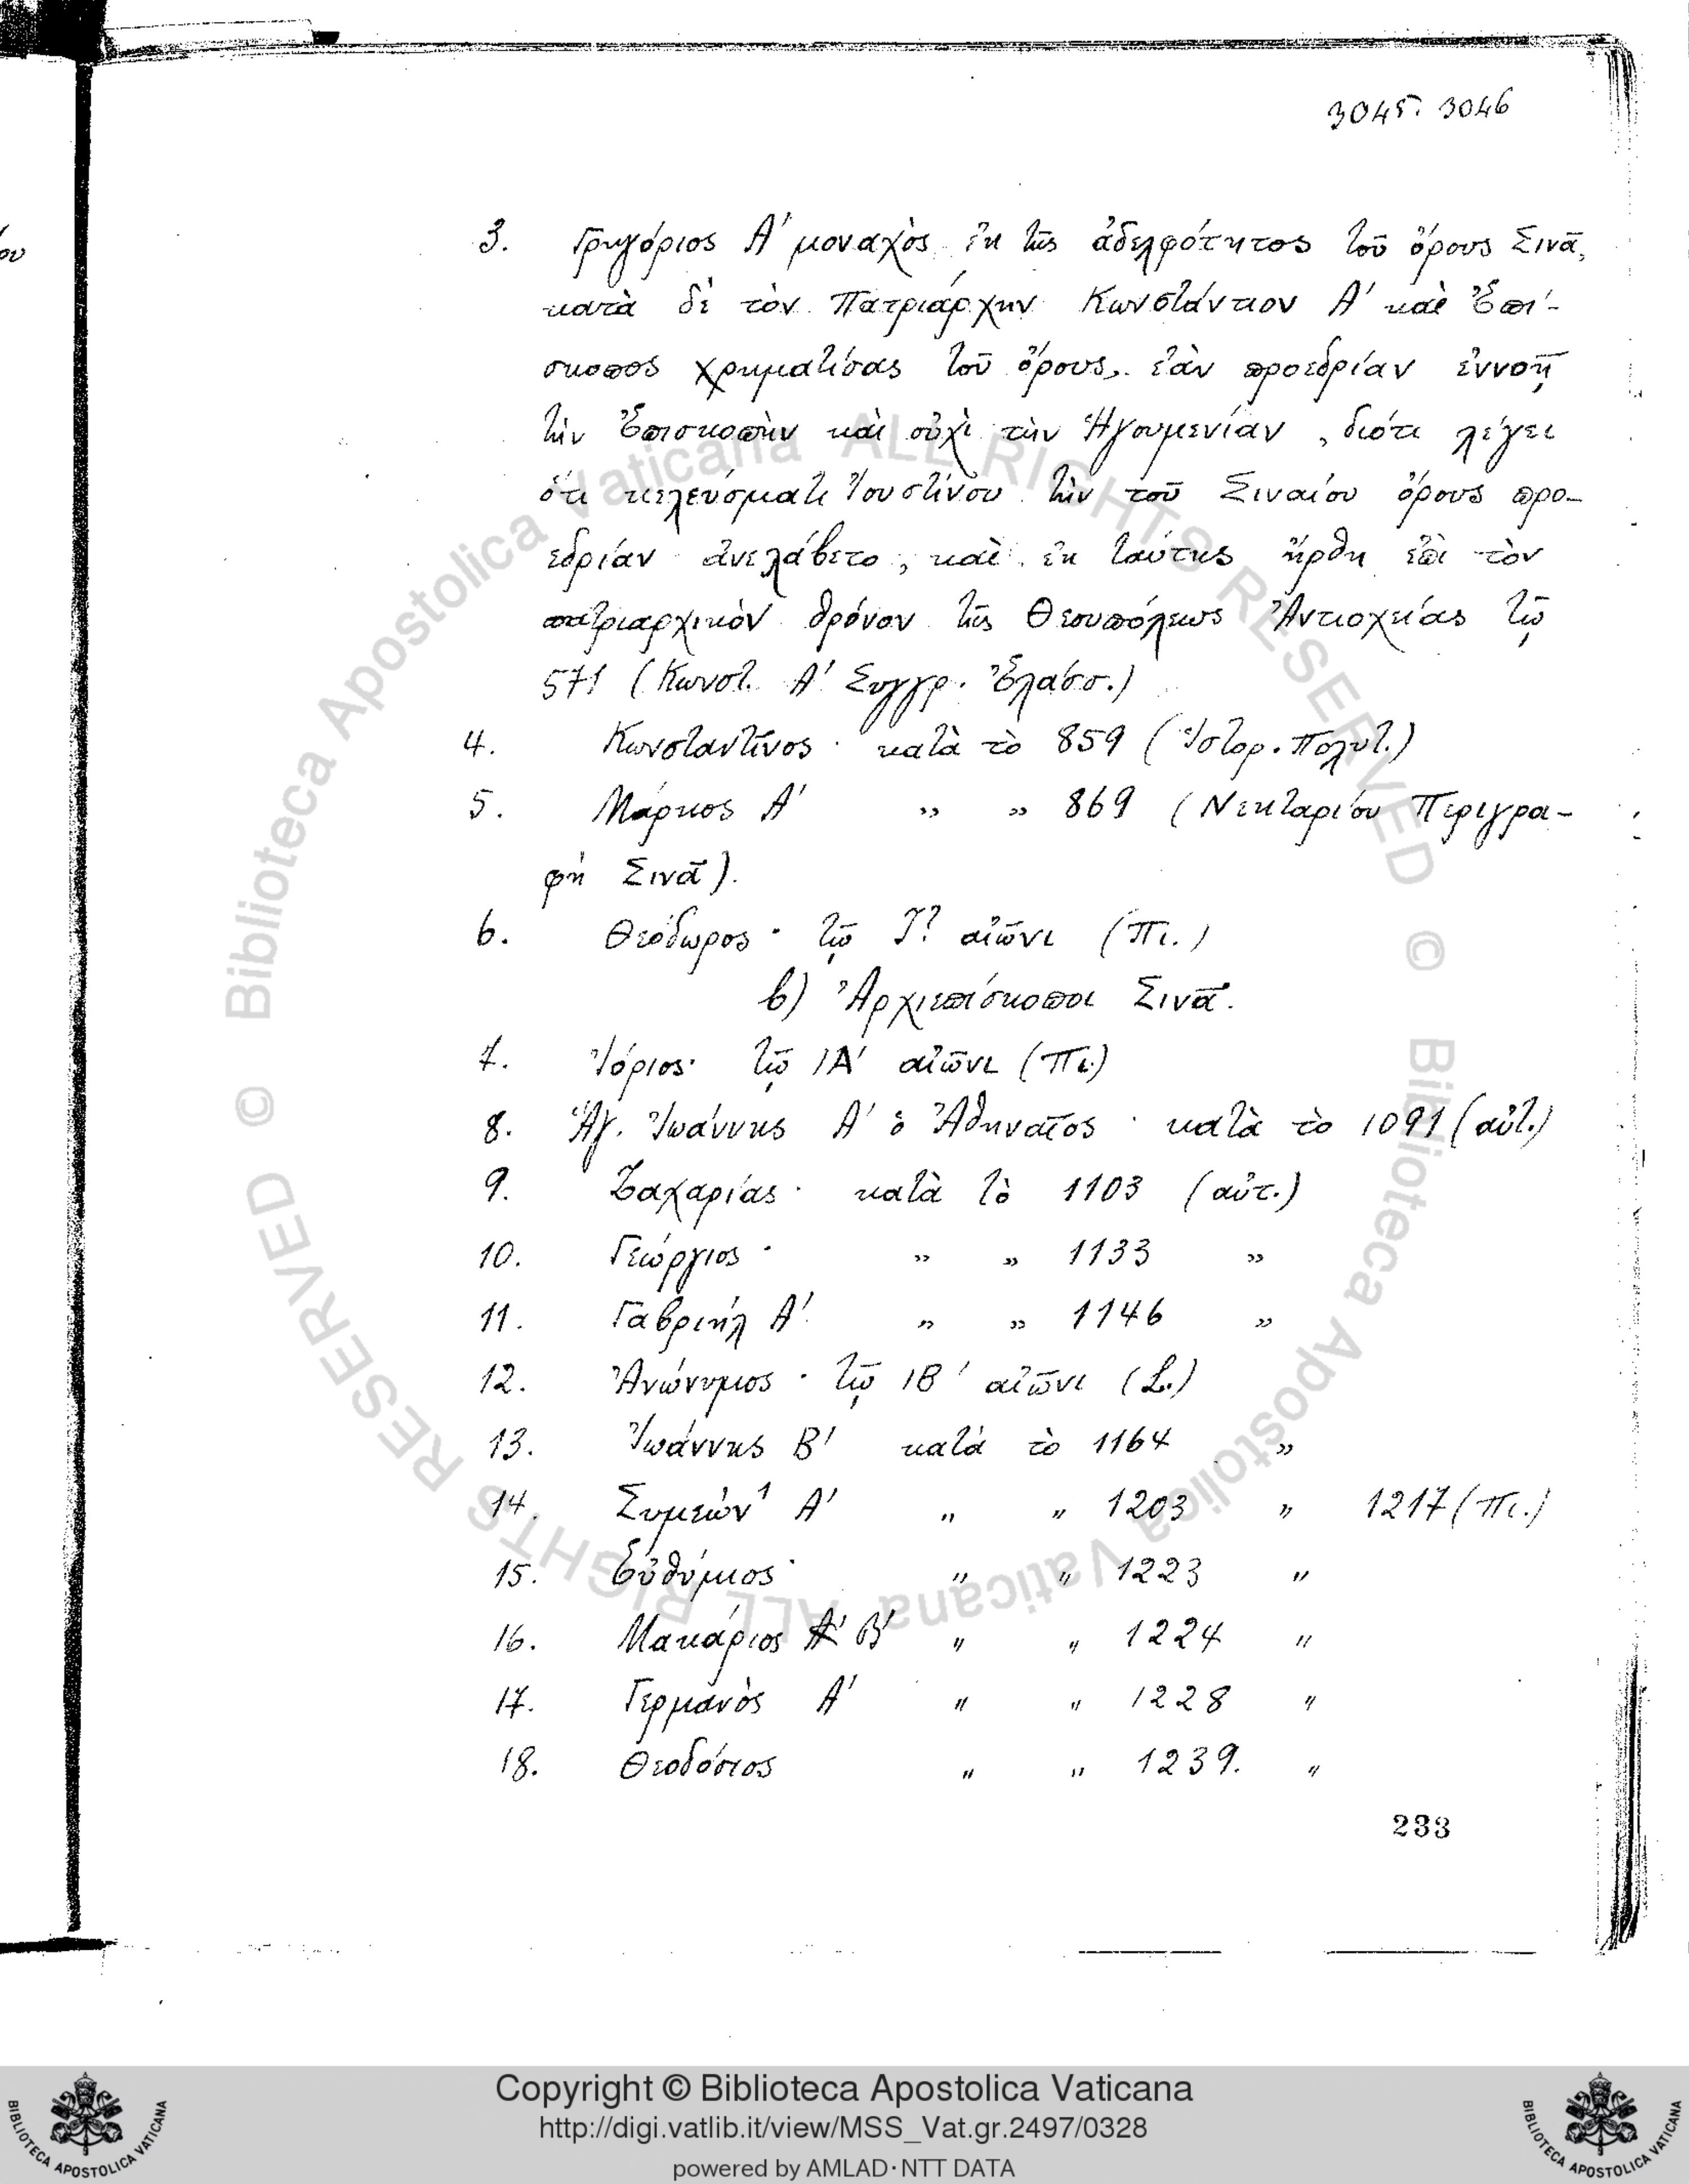 3045. 3046
3. Γρηγόριος Α' μοναχὸς ἐκ τῆς ἀδελφότητος τοῦ ὄρους Σινᾶ,
κατὰ δὲ τὸν Πατριάρχην Κωνστάντιον Α' καὶ Ἐπί-
σκοπος χρηματίσας τοῦ ὄρους, ἐὰν προεδρίαν ἐννοῇ
τὴν Ἐπισκοπὴν καὶ οὐχὶ τὴν Ἡγουμενίαν, διότι λέγει
ὅτι κελεύσματι Ἰουστίνου τὴν τοῦ Σιναίου ὄρους προ-
εδρίαν ἀνελάβετο, καὶ ἐκ ταύτης ἤρθη ἐπὶ τὸν
πατριαρχικὸν θρόνον τῆς Θεουπόλεως Ἀντιοχείας τῷ
571 (Κωνστ. Α' Συγγρ. Ἐλάσσ.)
4. Κωνσταντῖνος · κατὰ τὸ 859 (Ἱστορ. Πολυτ.)
5. Μάρκος Α' „ „ 869 (Νεκταρίου Περιγρα-
φὴ Σινᾶ).
6. Θεόδωρος · τῷ αἰῶνι (Πι.)
β) Ἀρχιεπίσκοποι Σινᾶ.
7. Ἰόριος· τῷ ΙΑ' αἰῶνι (Πι.)
8. Ἁγ. Ἰωάννης Α' ὁ Ἀθηναῖος · κατὰ τὸ 1091 (αὐτ.)
9. Ζαχαρίας · κατὰ τὸ 1103 (αὐτ.)
10. Γεώργιος · „ „ 1133 „
11. Γαβριὴλ Α' „ „ 1146 „
12. Ἀνώνυμος · τῷ ΙΒ' αἰῶνι (L.)
13. Ἰωάννης Β' κατὰ τὸ 1164 „
14. Συμεὼν¹ Α' „ „ 1203 „ 1217 (Πι.)
15. Εὐθύμιος · „ „ 1223 „
16. Μακάριος Α' Β' „ „ 1224 „
17. Γερμανὸς Α' „ „ 1228 „
18. Θεοδόσιος „ „ 1239. „
233
© Biblioteca Apostolica Vaticana ALL RIGHTS RESERVED © Biblioteca Apostolica Vaticana ALL RIGHTS RESERVED
Copyright © Biblioteca Apostolica Vaticana
http://digi.vatlib.it/view/MSS_Vat.gr.2497/0328
powered by AMLAD·NTT DATA
BIBLIOTECA APOSTOLICA VATICANA
BIBLIOTECA APOSTOLICA VATICANA